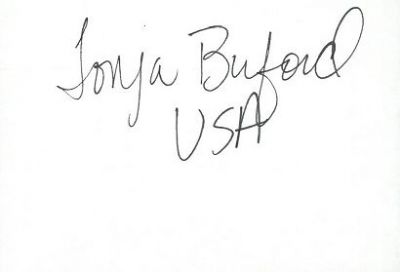 Tonja Buford
USA